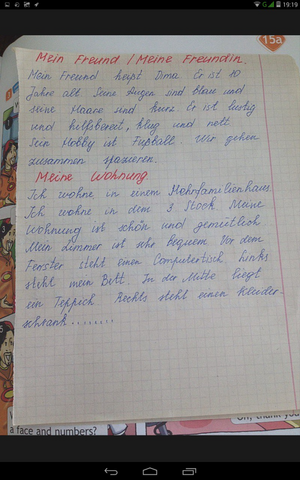 19:19
15a
Mein Freund / Meine Freundin.
Mein Freund heißt Dima. Er ist 10
Jahre alt. Seine Augen sind blau und
seine Haare sind kurz. Er ist lustig
und hilfsbereit, klug und nett.
Sein Hobby ist Fußball. Wir gehen
zusammen spazieren.
Meine Wohnung.
Ich wohne in einem Mehrfamilienhaus.
Ich wohne in dem 3. Stock. Meine
Wohnung ist schön und gemütlich
Mein Zimmer ist sehr bequem. Vor dem
Fenster steht einen Computertisch. Links
steht mein Bett. In der Mitte liegt
ein Teppich. Rechts steht einen Kleider-
schrank........
a face and numbers?
Oh, thank you